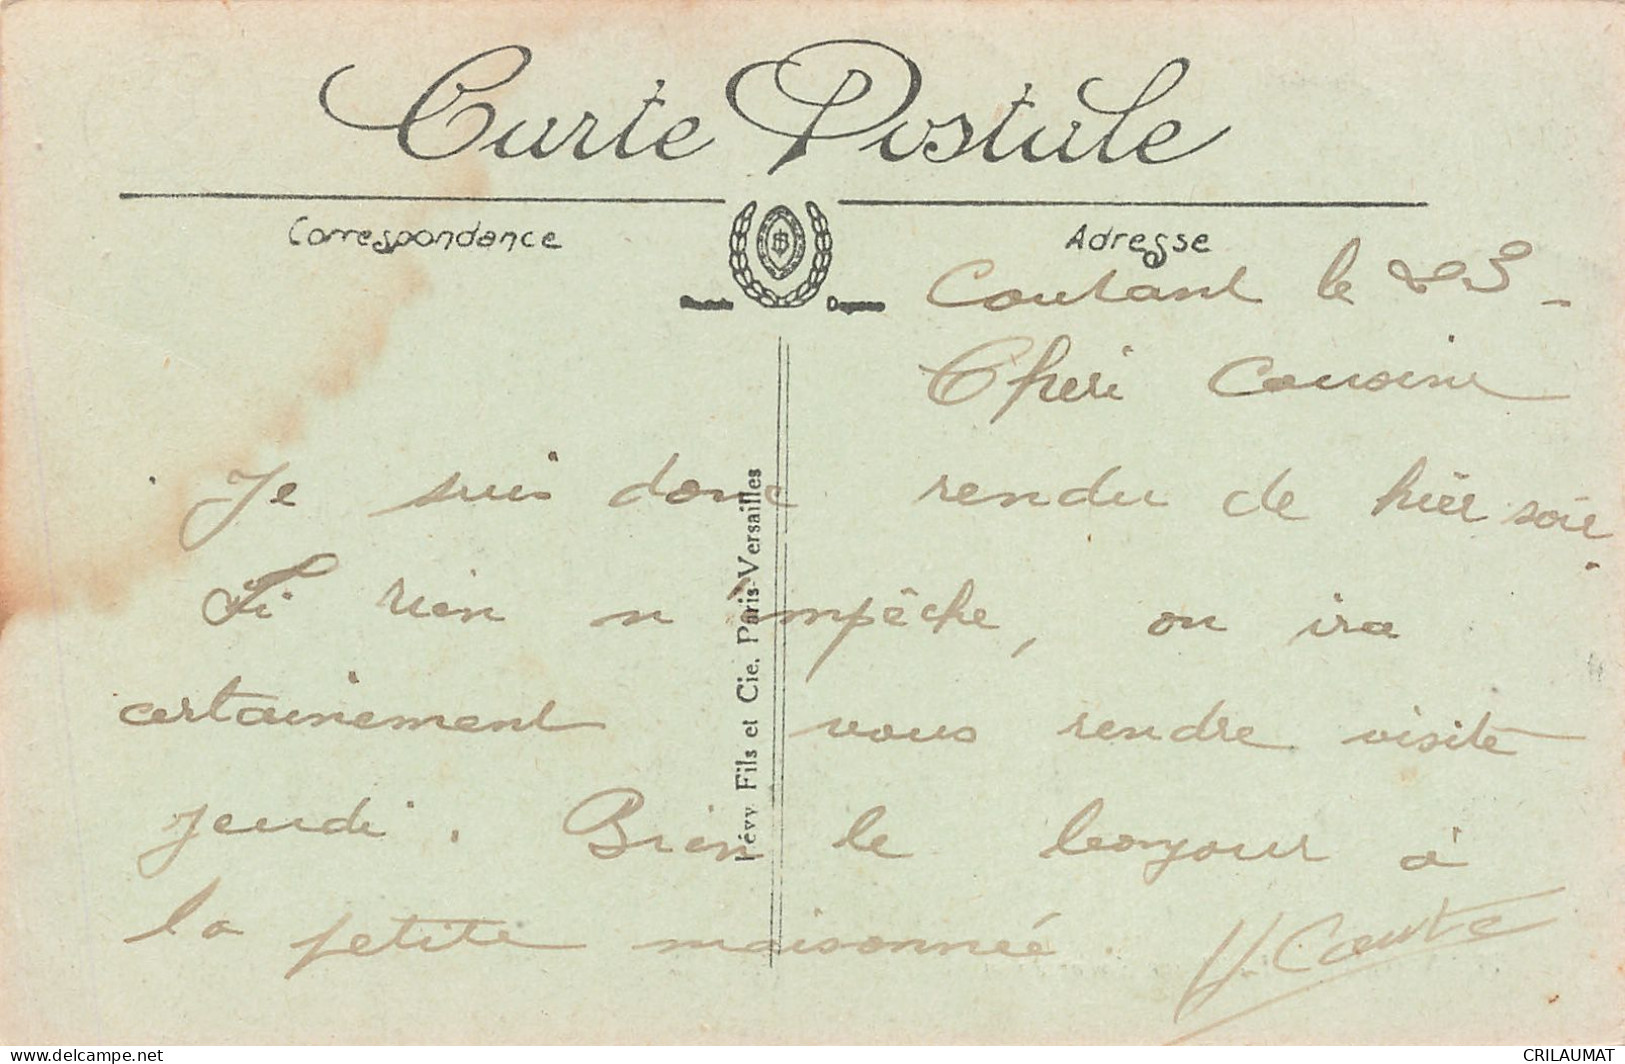 Carte Postale
Correspondance
Adresse
le 23 -
Cheri Cousin
Je suis donc rendu de hier soir.
Si rien n'empêche, on ira
certainement vous rendre visite
jeudi. Bien le bonjour à
la petite maisonnée.
Lévy Fils et Cie, Paris-Versailles
delcampe.net
CRILAUMAT